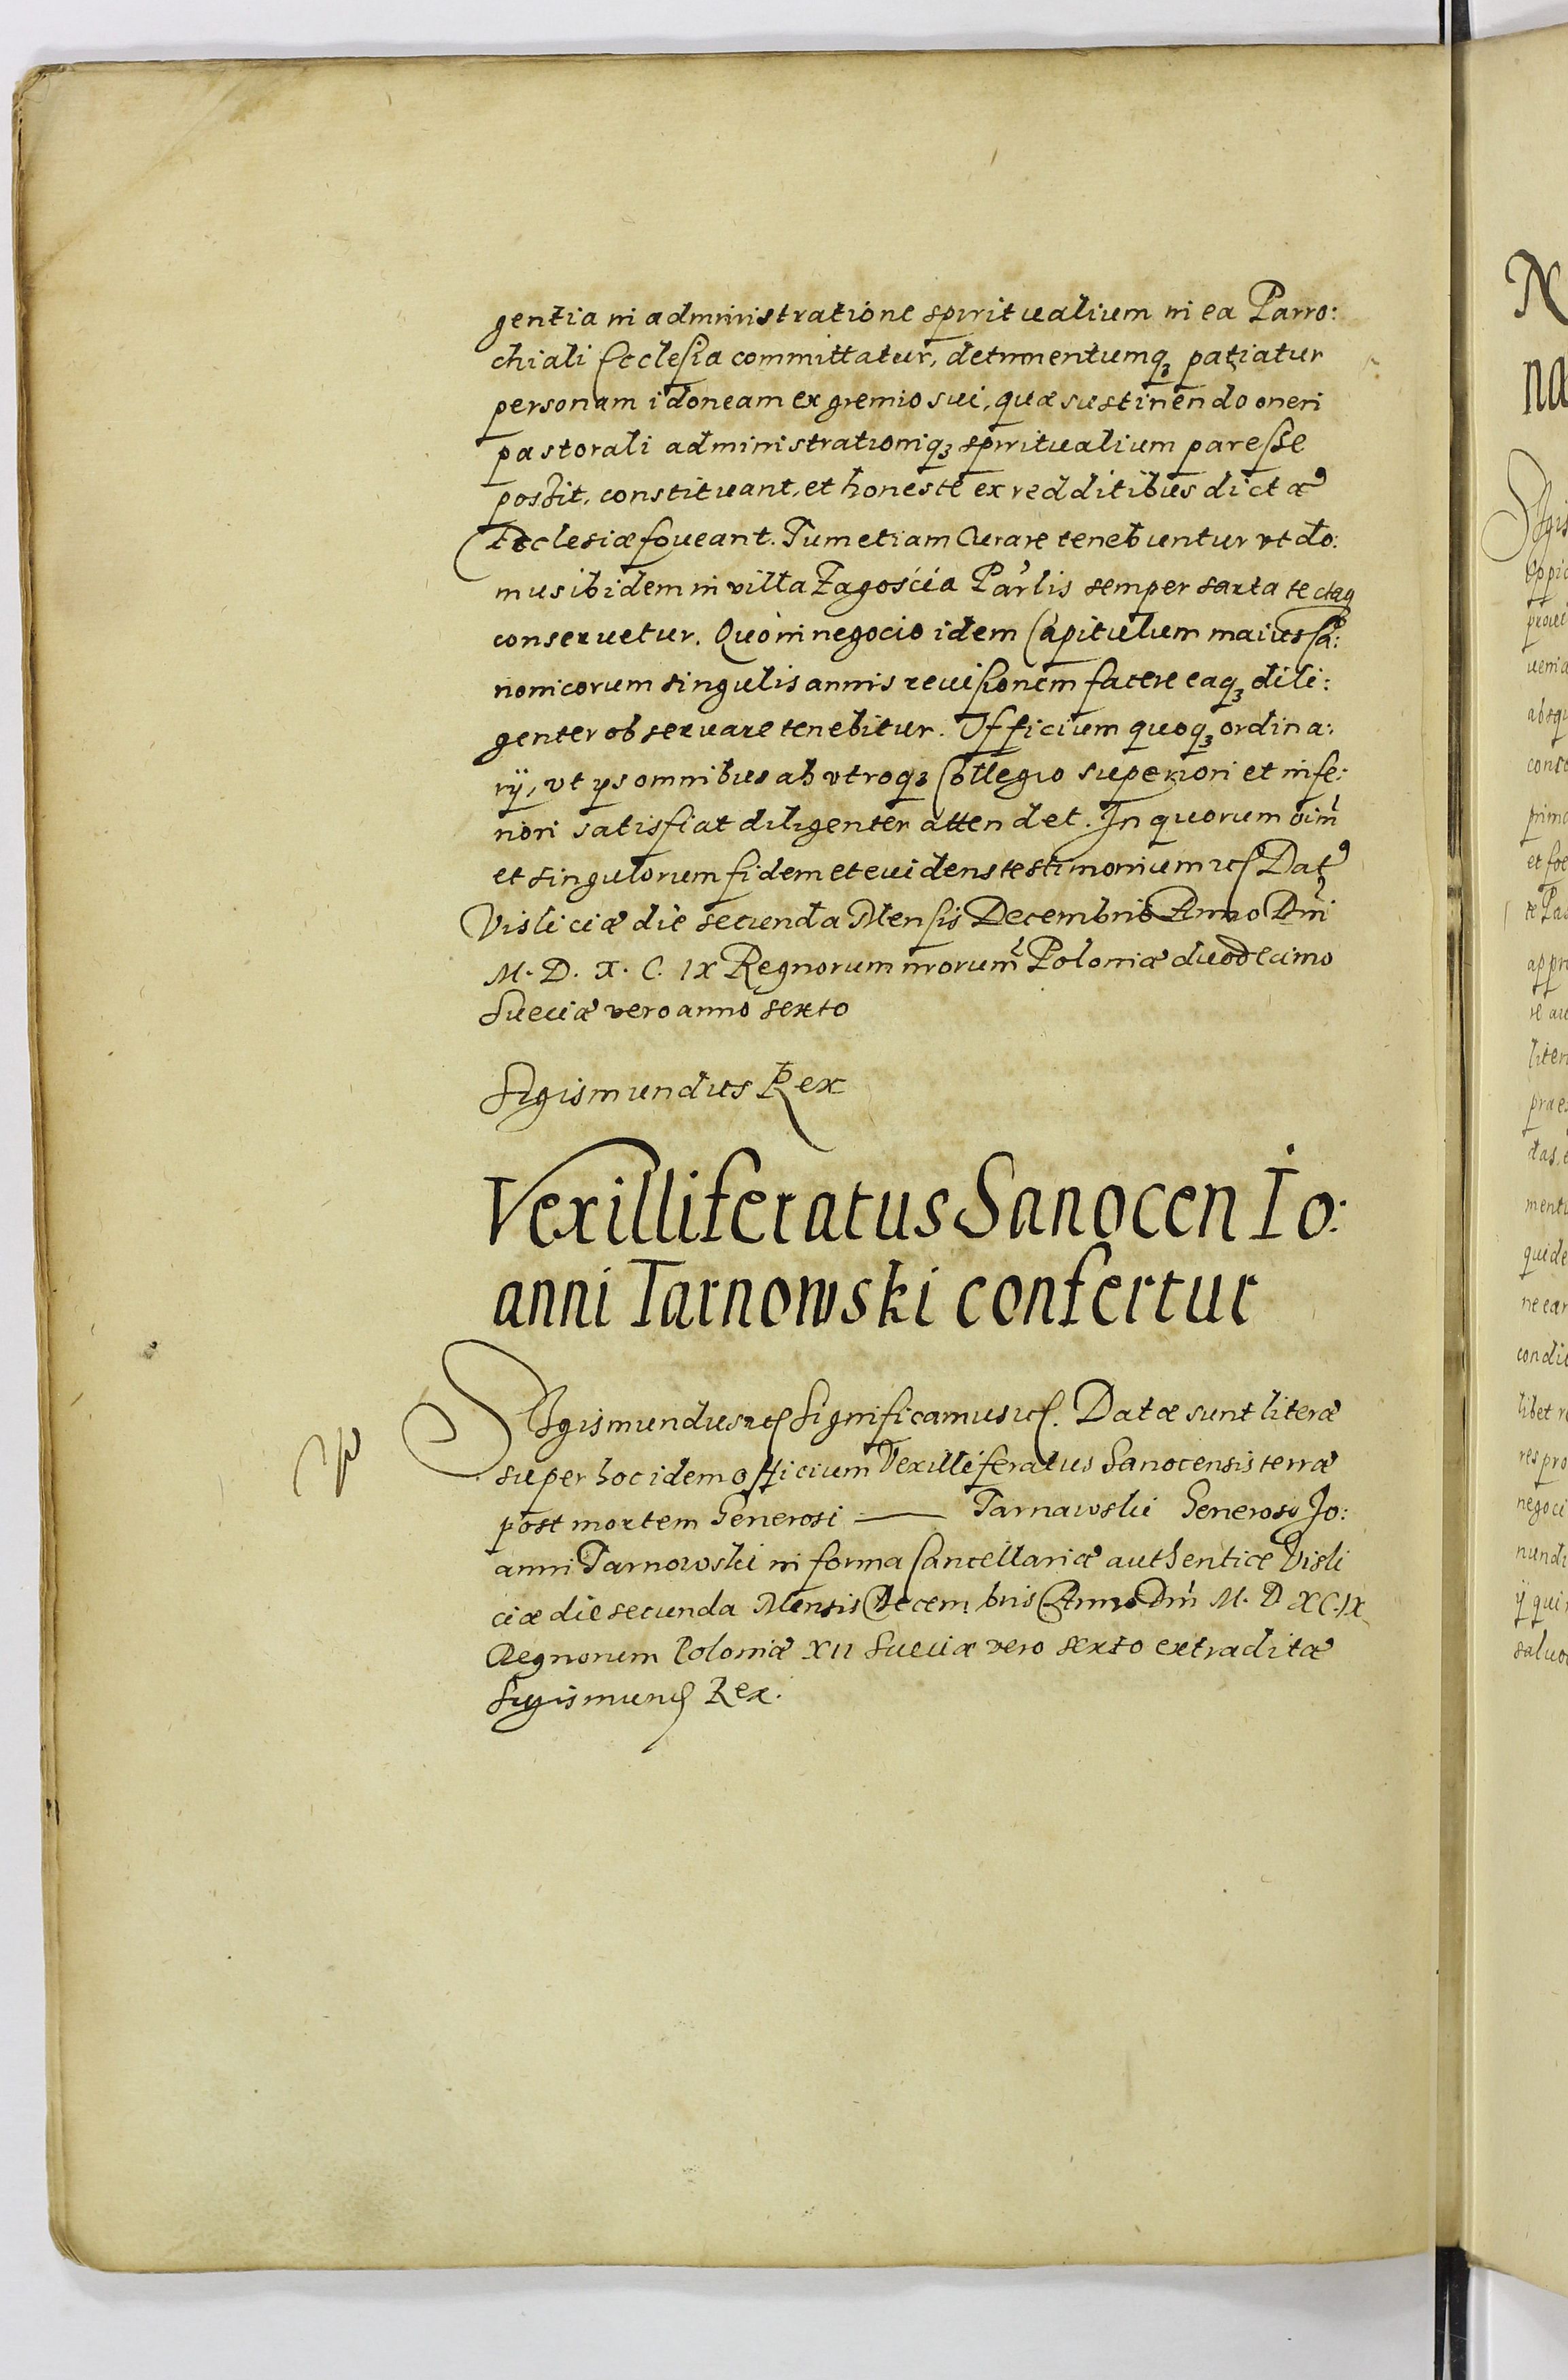 gentia in administratione spiritualium in ea Parro:
chiali Ecclesia committatur, detrimentumq3 patiatur
personam idoneam ex gremio sui, quæ sustinendo oneri
pastorali administrationiq3 spiritualium par esse
possit, constituant, et honeste ex redditibus dictæ
Ecclesiæ foveant. Tum etiam Curare tenebuntur vt do:
mus ibidem in villa Zagoscia Parlis semper sarta tectaq
conseruetur. Quo in negocio idem Capitulum maius Ca:
nonicorum singulis annis reuisionem facere eaq3 dili:
genter obseruare tenebitur. Officium quoq3 ordina:
rij, vt ijs omnibus ab vtroq3 Collegio superiori et infe:
riori satisfiat diligenter attendet. In quorum oim
et singulorum fidem et euidens testimonium etc Dat
Visliciæ die secunda Mensis Decembris Anno Dni
M. D. X. C. IX Regnorum nrorum Poloniæ duodecimo
Sueciæ vero anno sexto
Sigismundus Rex
Vexilliferatus Sanocen Io:
anni Tarnowski confertur
Sigismundus etc Significamus etc. Datæ sunt literæ
super hoc idem officium Vexilliferatus Sanocensis terræ
post mortem Generosi — Tarnawski Generoso Jo:
anni Tarnowski in forma Cancellariæ authentice Visli
ciæ die secunda Mensis Decembris Anno Dni M. D XC. IX
Regnorum Poloniæ XII Sueciæ vero sexto extraditæ
Sigismund Rex.